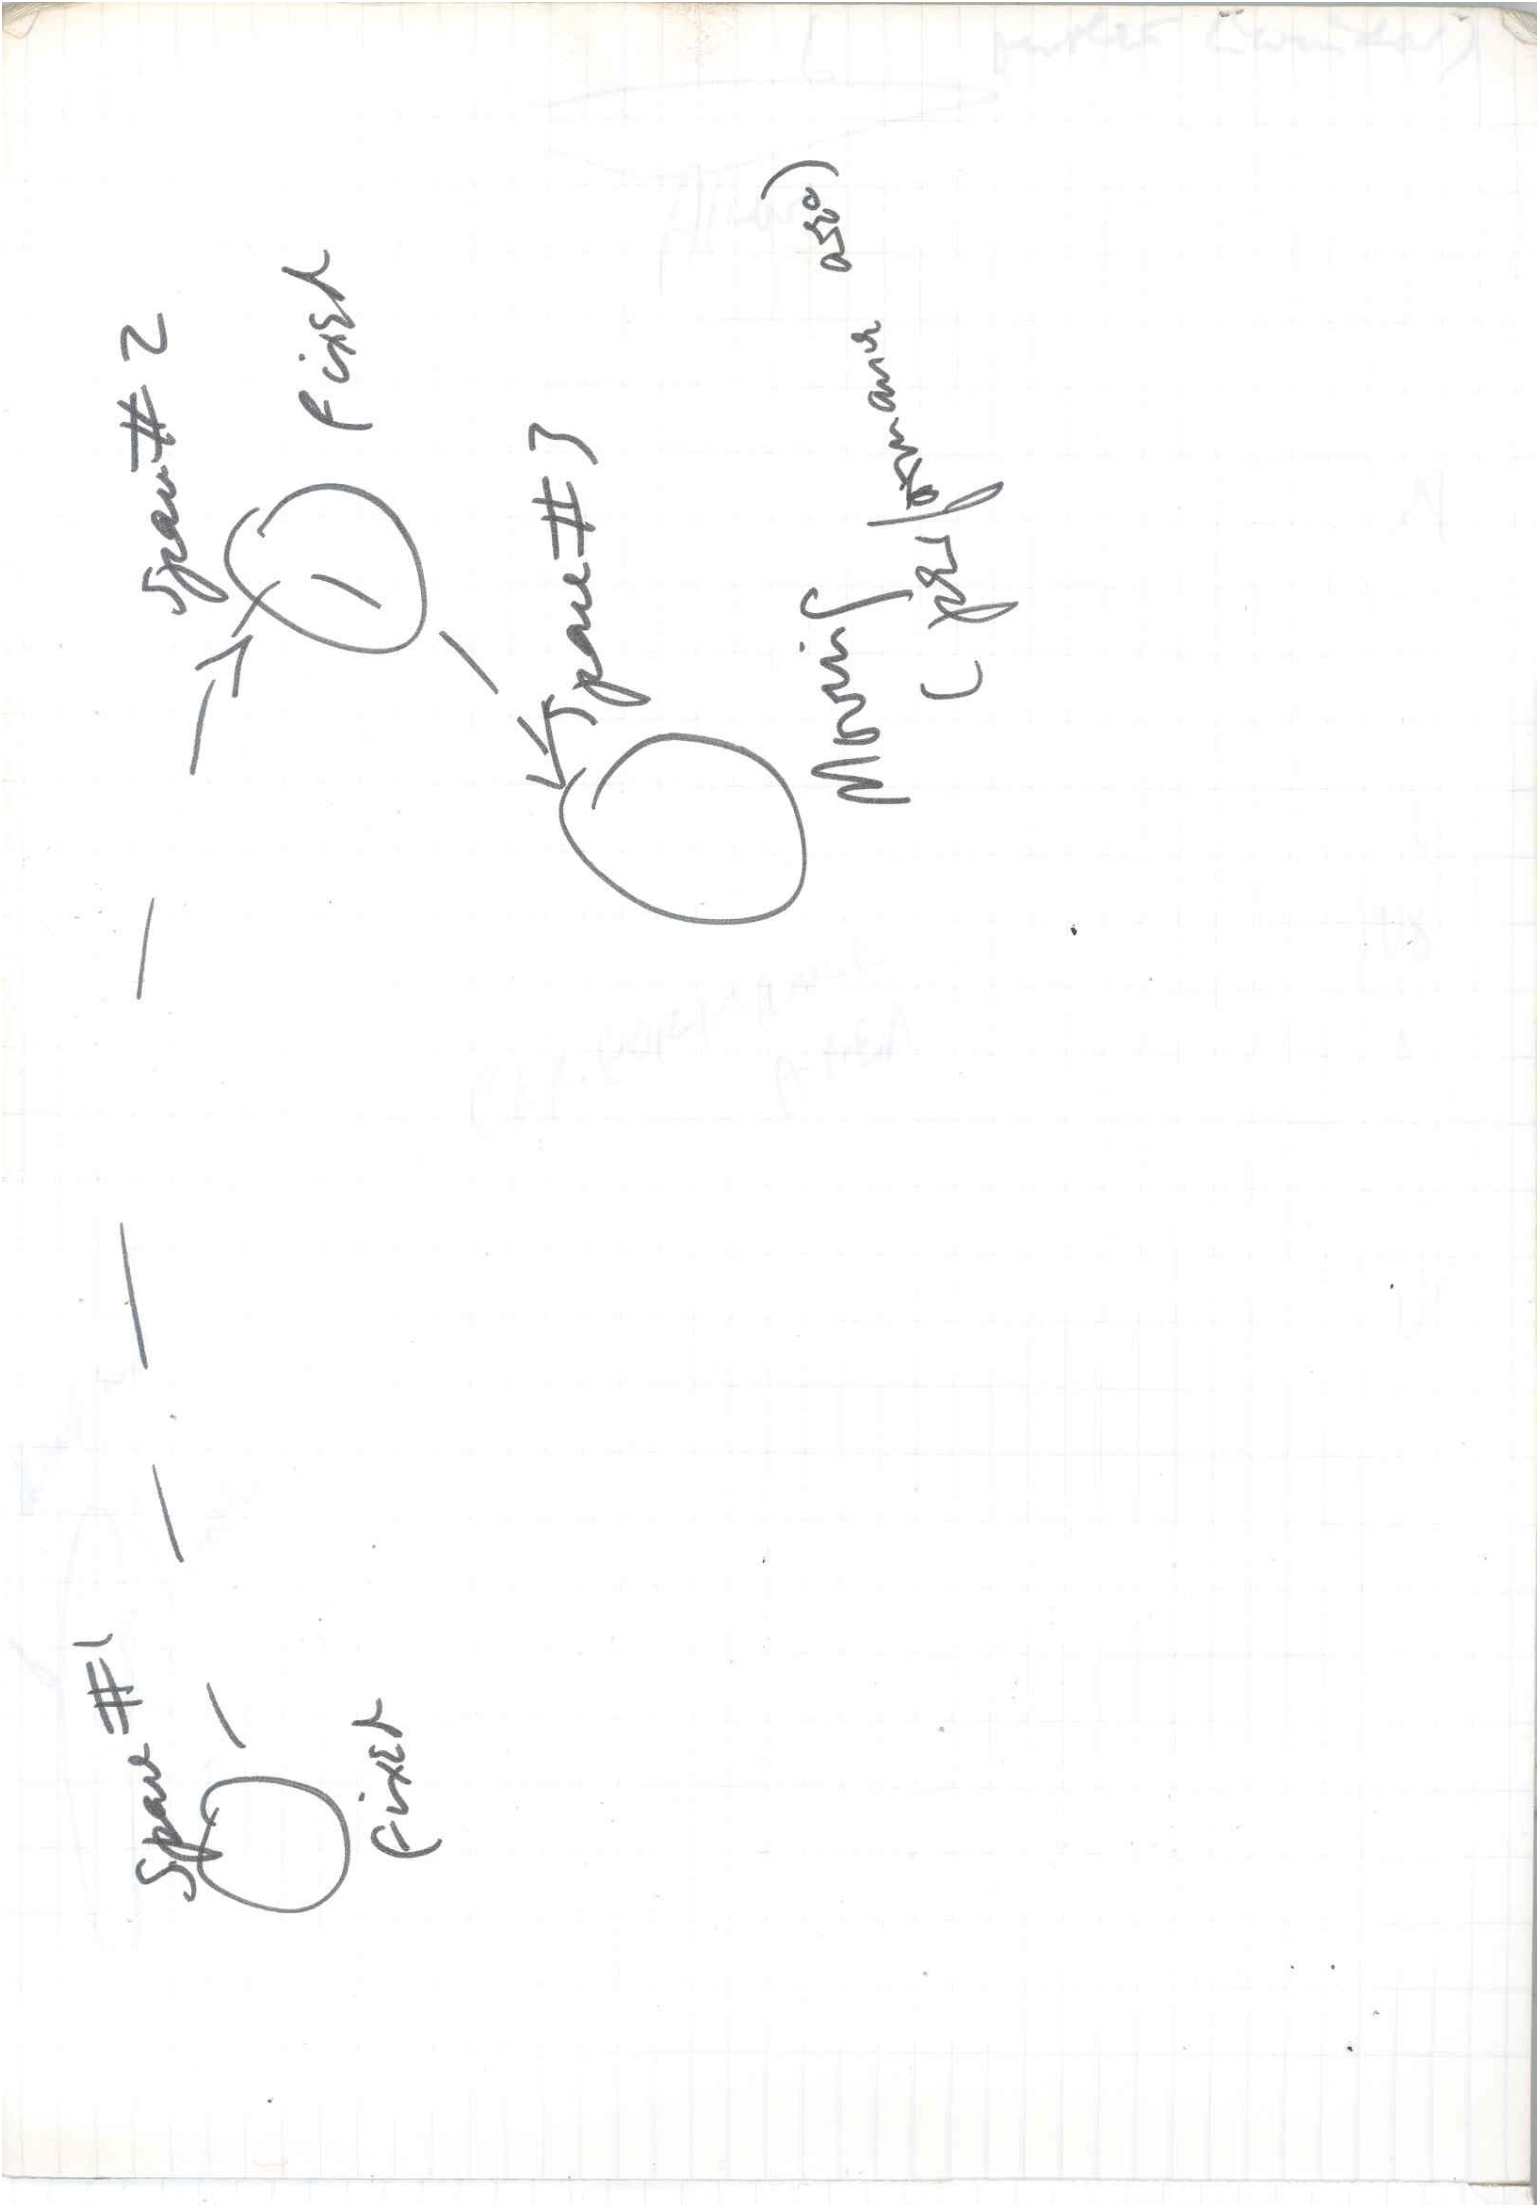 Space #1
Fixed
Space #2
Fixed
Space #3
Moving
(performance also)